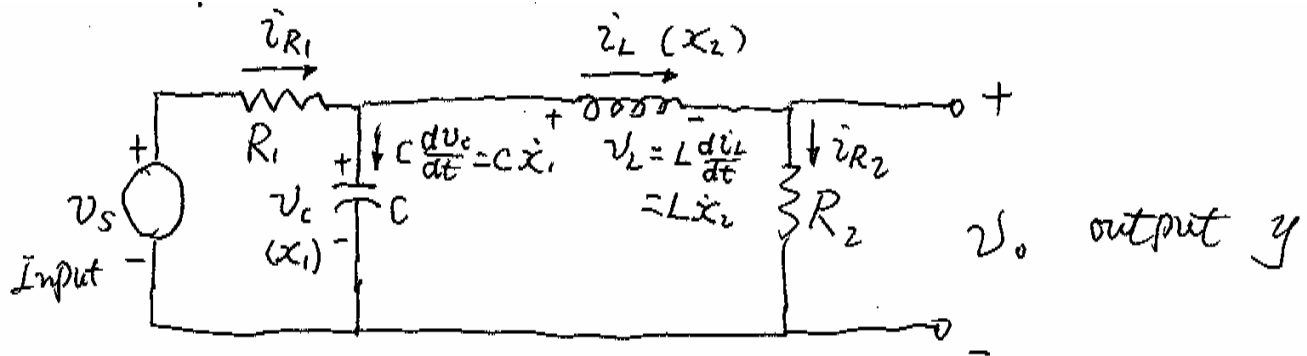 i_{R_1}
i_L (x_2)
+
R_1
C dv_c/dt = C ẋ_1
+ -
v_L = L di_L/dt
= L ẋ_2
i_{R_2}
+
v_s
-
Input
+
v_c
(x_1)
-
C
R_2
v_o output y
-